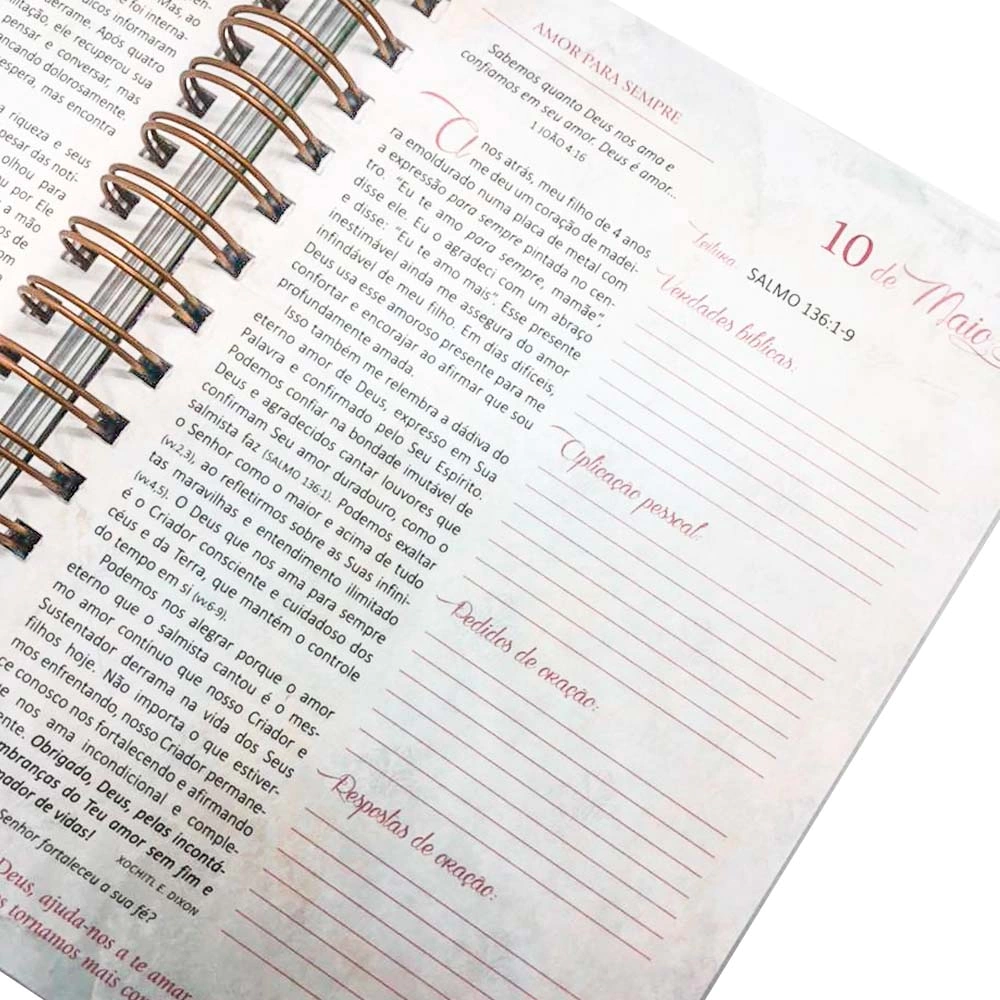 Mas, ao
foi interna-
dicos informaram
derrame. Após quatro
itação, ele recuperou sua
pensar e conversar, mas
ancando dolorosamente.
espera, mas encontra
riqueza e seus
pesar das notí-
olhou para
u por Ele
a mão
os de
om
AMOR PARA SEMPRE
Sabemos quanto Deus nos ama e
confiamos em seu amor. Deus é amor...
1 JOÃO 4:16
A nos atrás, meu filho de 4 anos
me deu um coração de madei-
ra emoldurado numa placa de metal com
a expressão para sempre pintada no cen-
tro. "Eu te amo para sempre, mamãe",
disse ele. Eu o agradeci com um abraço
e disse: "Eu te amo mais". Esse presente
inestimável ainda me assegura do amor
infindável de meu filho. Em dias difíceis,
Deus usa esse amoroso presente para me
confortar e encorajar ao afirmar que sou
profundamente amada.
Isso também me relembra a dádiva do
eterno amor de Deus, expresso em Sua
Palavra e confirmado pelo Seu Espírito.
Podemos confiar na bondade imutável de
Deus e agradecidos cantar louvores que
confirmam Seu amor duradouro, como o
salmista faz (SALMO 136:1). Podemos exaltar
o Senhor como o maior e acima de tudo
(vv.2,3), ao refletirmos sobre as Suas infini-
tas maravilhas e entendimento ilimitado
(vv.4,5). O Deus que nos ama para sempre
é o Criador consciente e cuidadoso dos
céus e da Terra, que mantém o controle
do tempo em si (vv.6-9).
Podemos nos alegrar porque o amor
eterno que o salmista cantou é o mes-
mo amor contínuo que nosso Criador e
Sustentador derrama na vida dos Seus
filhos hoje. Não importa o que estiver-
mos enfrentando, nosso Criador permane-
ce conosco nos fortalecendo e afirmando
e nos ama incondicional e comple-
ente. Obrigado, Deus, pelas incontá-
mbranças do Teu amor sem fim e
mador de vidas!
XOCHITL E. DIXON
Senhor fortaleceu a sua fé?
Deus, ajuda-nos a te amar
os tornamos mais
10 de Maio
Leitura: SALMO 136:1-9
Verdades bíblicas:
Aplicação pessoal:
Pedidos de oração:
Respostas de oração: